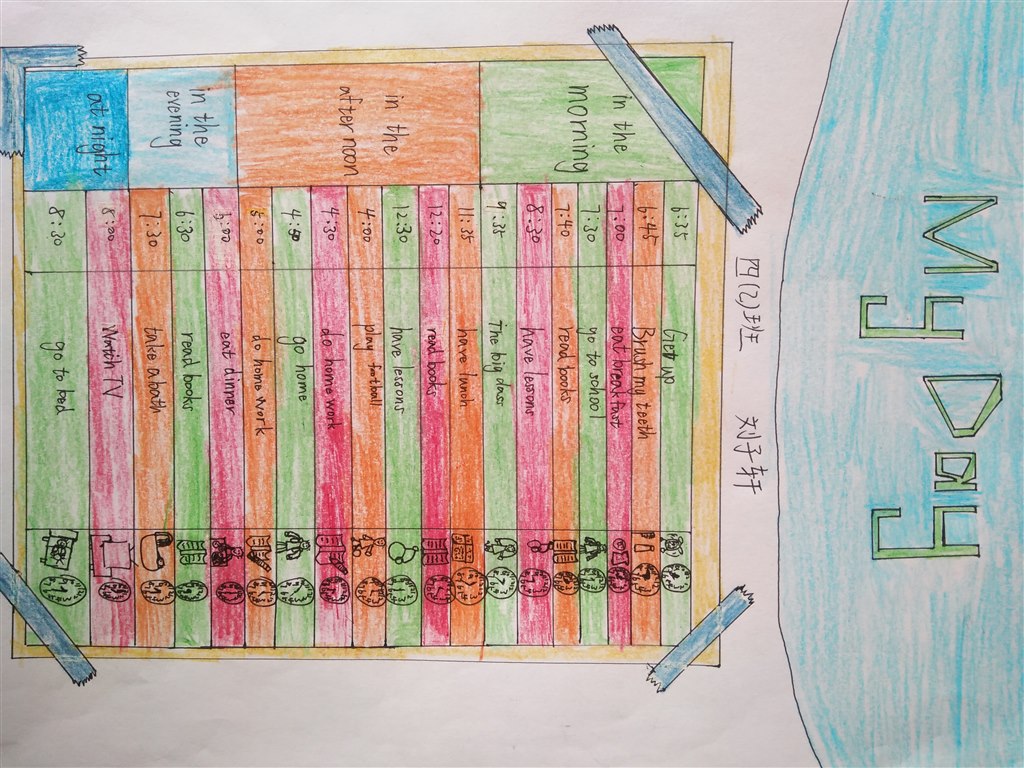 My Day
四(2)班 刘子轩
in the
morning
6:35 Get up
6:45 Brush my teeth
7:00 eat breakfast
7:30 go to school
7:40 read books
8:30 have lessons
9:35 The big class
in the
afternoon
11:35 have lunch
12:20 read books
12:30 have lessons
4:00 play football
4:30 do home work
4:50 go home
5:00 do home work
in the
evening
eat dinner
6:30 read books
7:30 take a bath
at night
8:00 Watch TV
8:30 go to bed